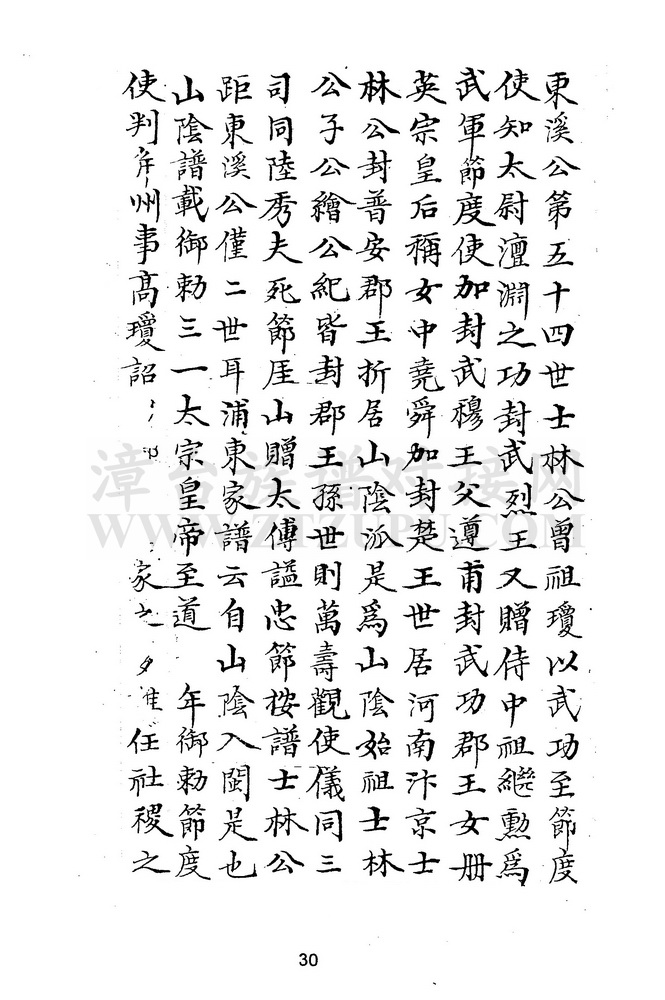 東溪公第五十四世士林公曾祖瓊以武功至節度
使知太尉澶淵之功封武烈王又贈侍中祖繼勲爲
武軍節度使加封武穆王父遵甫封武功郡王女册
英宗皇后稱女中堯舜加封楚王世居河南汴京士
林公封普安郡王折居山陰派是爲山陰始祖士林
公子公繪公紀皆封郡王孫世則萬壽觀使儀同三
司同陸秀夫死節厓山贈太傅謚忠節按譜士林公
距東溪公僅二世耳浦東家譜云自山陰入閩是也
山陰譜載御勅三一太宗皇帝至道 年御勅節度
使判 州事高瓊詔 家之 任社稷之
漳台族譜对接网
WWW.ZTZUPU.COM
30